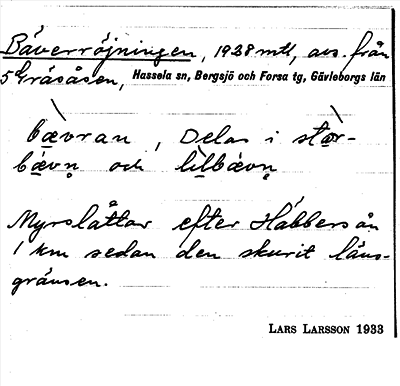 Bäverröjningen, 1928 mtl, avs. från
5 Gräsåsen, Hassela sn, Bergsjö och Forsa tg, Gävleborgs län
bævran, Delas i stor-
bævn̥ och lìlbævn̥
Myrslåttar efter Håbbersån
1 km sedan den skurit läns-
gränsen.
LARS LARSSON 1933